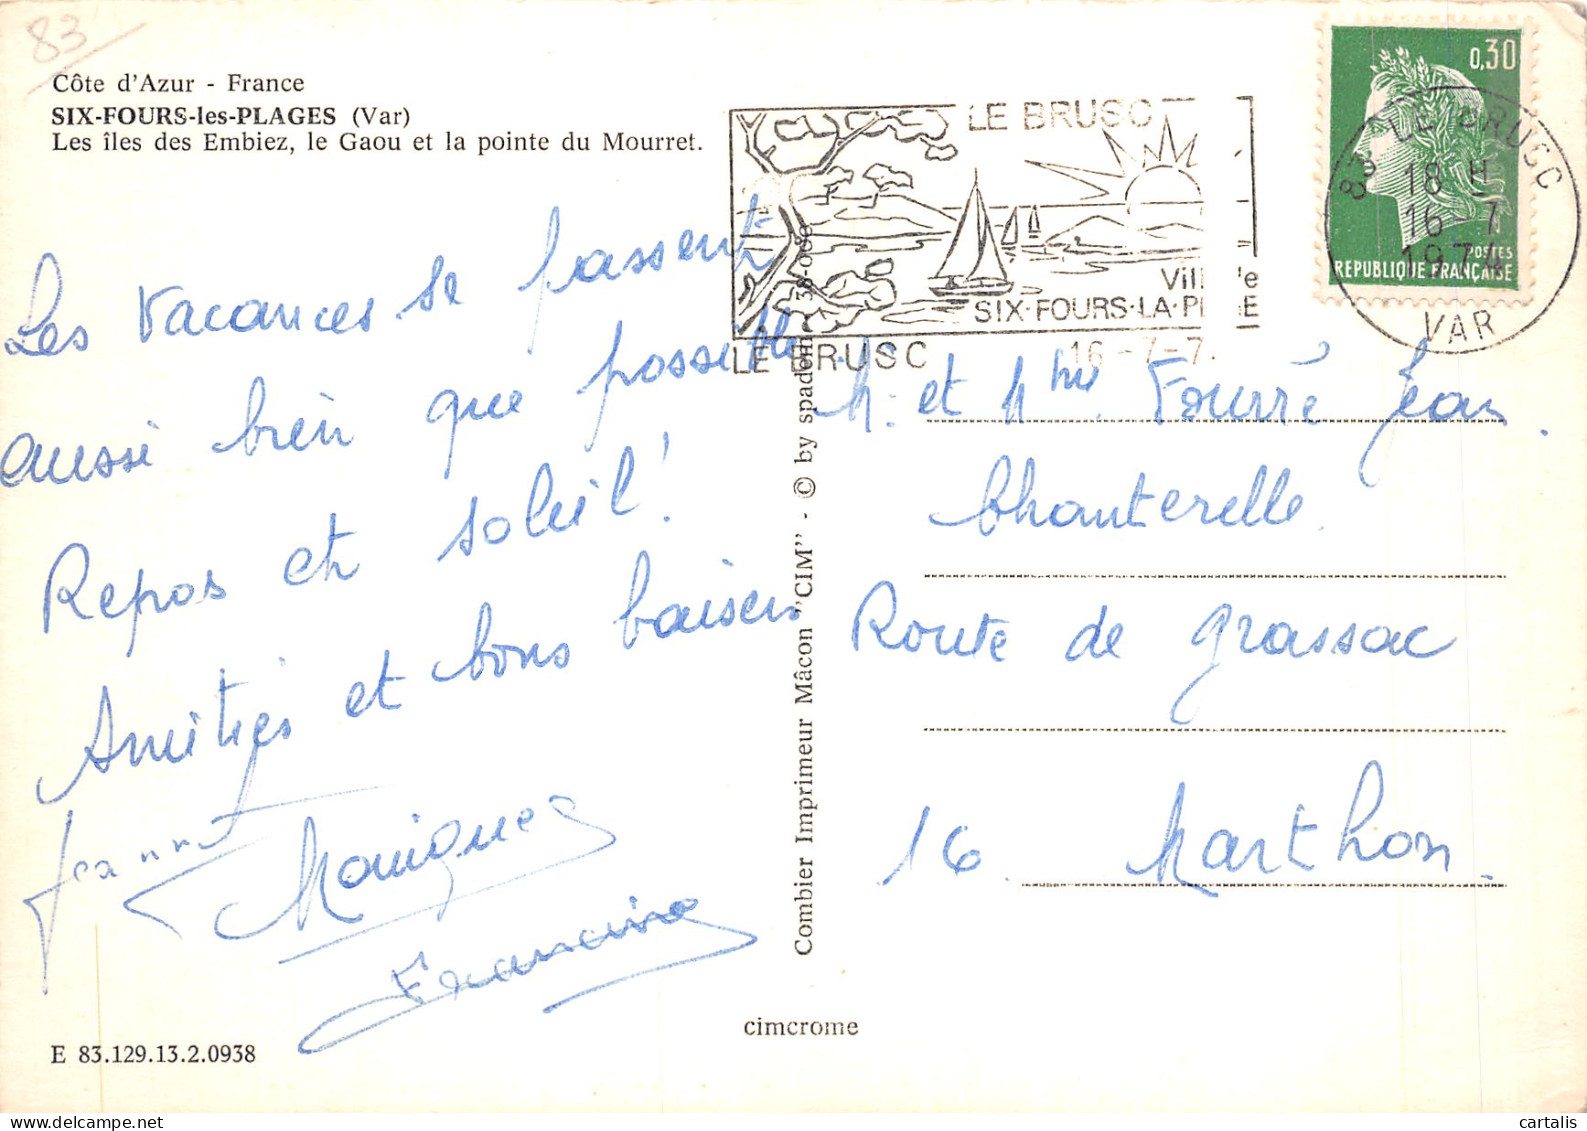 83
Côte d'Azur - France
SIX-FOURS-les-PLAGES (Var)
Les îles des Embiez, le Gaou et la pointe du Mourret.
Les vacances se passent
aussi bien que possible.
Repos et soleil !
Amitiés et bons baisers
Jeannot
Monique
Francine
E 83.129.13.2.0938
Combier Imprimeur Mâcon "CIM" - © by spadem
cimcrome
LE BRUSC
SIX-FOURS-LA-PLAGE
LE BRUSC 16-7-7
0,30
POSTES
REPUBLIQUE FRANÇAISE
83 LE BRUSC
18 H
16-7
1974
VAR
Mr et Mme Fourré Jean.
Chanterelle.
Route de Grassac
16. Marthon.
cartalis